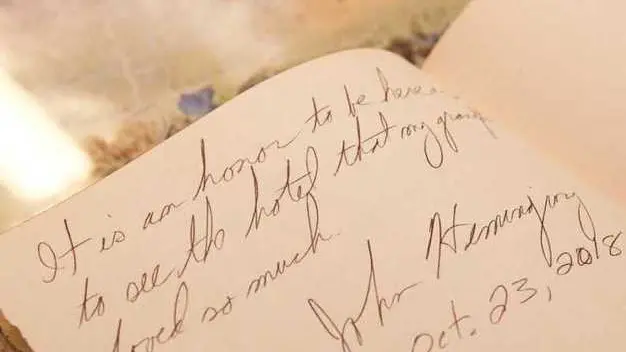 It is an honor to be here
to see the hotel that my
loved so much.
John Hemingway
Oct. 23, 2018